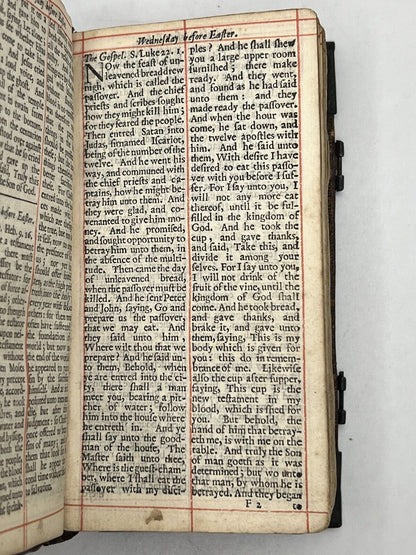 Wednesday before Easter.
The Gospel. S. Luke 22. 1.
NOw the feast of un-
leavened bread drew
nigh, which is called the
passover. And the chief
priests and scribes sought
how they might kill him;
for they feared the people.
Then entred Satan into
Judas, sirnamed Iscariot,
being of the number of the
twelve. And he went his
way, and communed with
the chief priests and ca-
ptains, how he might be-
tray him unto them. And
they were glad, and co-
venanted to give him mo-
ney. And he promised,
and sought opportunity to
betray him unto them, in
the absence of the multi-
tude. Then came the day
of unleavened bread,
when the passover must be
killed. And he sent Peter
and John, saying, Go and
prepare us the passover,
that we may eat. And
they said unto him,
Where wilt thou that we
prepare? And he said un-
to them, Behold, when
ye are entred into the ci-
ty, there shall a man
meet you, bearing a pit-
cher of water; follow
him into the house where
he entreth in. And ye
shall say unto the good-
man of the house, The
Master saith unto thee,
Where is the guest-cham-
ber, where I shall eat the
passover with my disci-
ples? And he shall shew
you a large upper room
furnished; there make
ready. And they went,
and found as he had said
unto them: and they
made ready the passover.
And when the hour was
come, he sat down, and
the twelve apostles with
him. And he said unto
them, With desire I have
desired to eat this passo-
ver with you before I suf-
fer. For I say unto you, I
will not any more eat
thereof, until it be ful-
filled in the kingdom of
God. And he took the
cup, and gave thanks,
and said, Take this, and
divide it among your
selves. For I say unto you,
I will not drink of the
fruit of the vine, until the
kingdom of God shall
come. And he took bread,
and gave thanks, and
brake it, and gave unto
them, saying, This is my
body which is given for
you: this do in remem-
brance of me. Likewise
also the cup after supper,
saying, This cup is the
new testament in my
blood, which is shed for
you. But behold, the
hand of him that betray-
eth me, is with me on the
table. And truly the Son
of man goeth as it was
determined; but wo unto
that man, by whom he is
betrayed. And they began
F 2 to